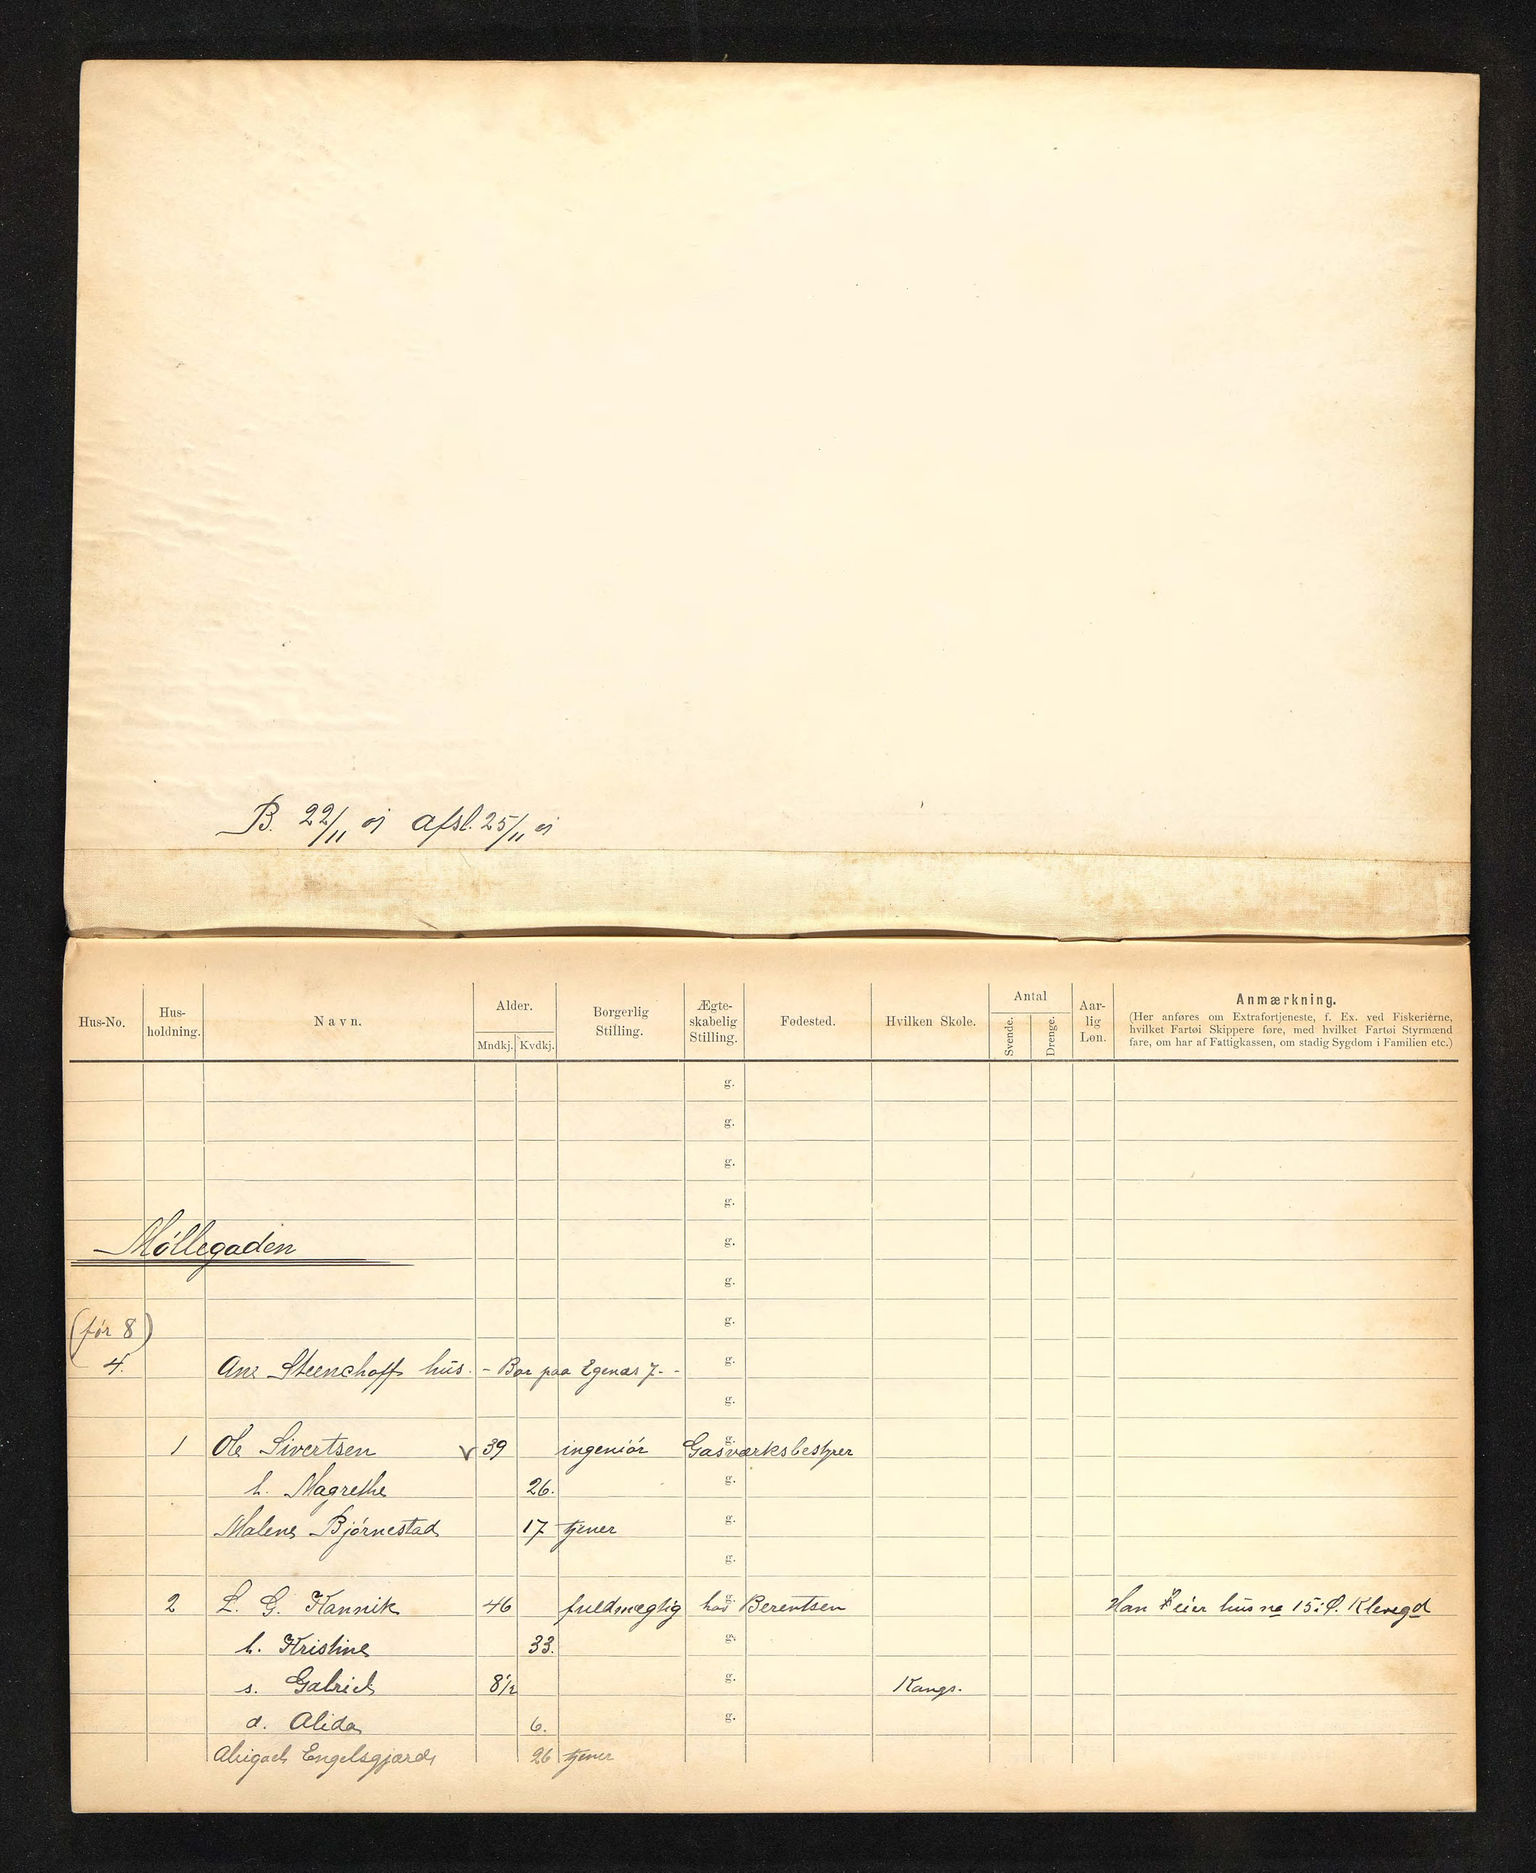 B. 22/11 afsl. 25/11
Hus-No. Hus-holdning. Navn. Alder. Mndkj. Kvdkj. Borgerlig Stilling. Ægte-skabelig Stilling. Fødested. Hvilken Skole. Antal Svende. Drenge. Aar-lig Løn. Anmærkning.
(Her anføres om Extrafortjeneste, f. Ex. ved Fiskerierne,
hvilket Fartøi Skippere føre, med hvilket Fartøi Styrmænd
fare, om har af Fattigkassen, om stadig Sygdom i Familien etc.)
g.
g.
g.
g.
Møllegaden g.
g.
(før 8) g.
4. Ane Steenchoffs hus. - Bor paa Egenæs 7. - - g.
g.
1 Ole Sivertsen v 39 ingeniør g. Gasværksbestyrer
h. Magrethe 26. g.
Malene Bjørnestad 17 tjener g.
g.
2 L. G. Kannik 46 fuldmegtig hos g. Berentsen Han Eier hus no 15 i Ø. Klevegd
h. Kristine 33. g.
s. Gabriel 8 1/2 g. Kongs.
d. Alida 6. g.
Abigael Engelsgjærd 26 tjener